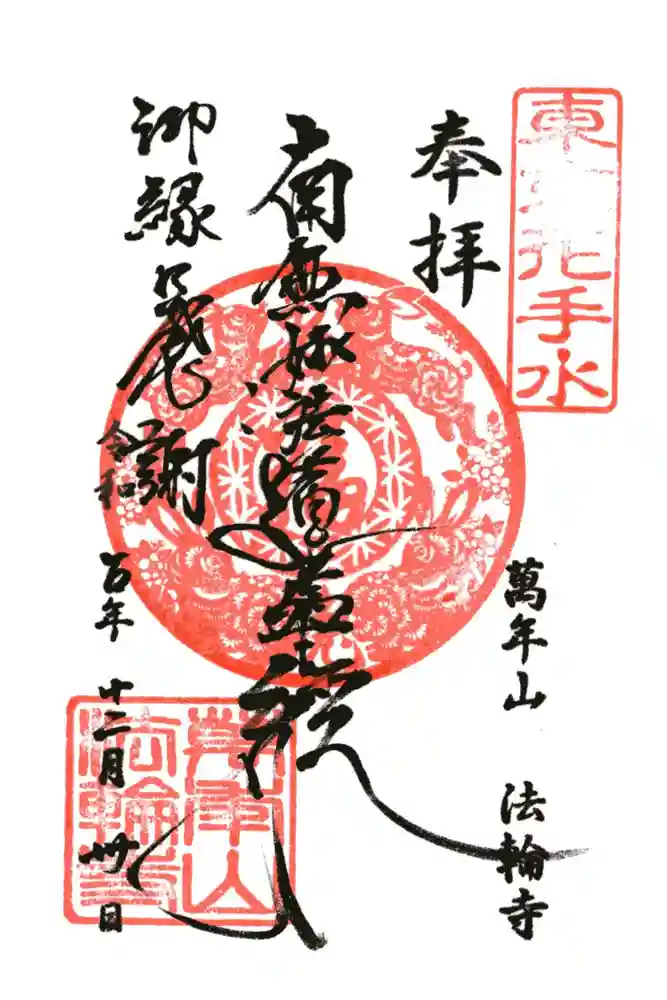 東京花手水
奉拝
萬年山 法輪寺
南無妙法蓮華経
御縁感謝
令和五年 十二月 卅日
萬年山
法輪寺